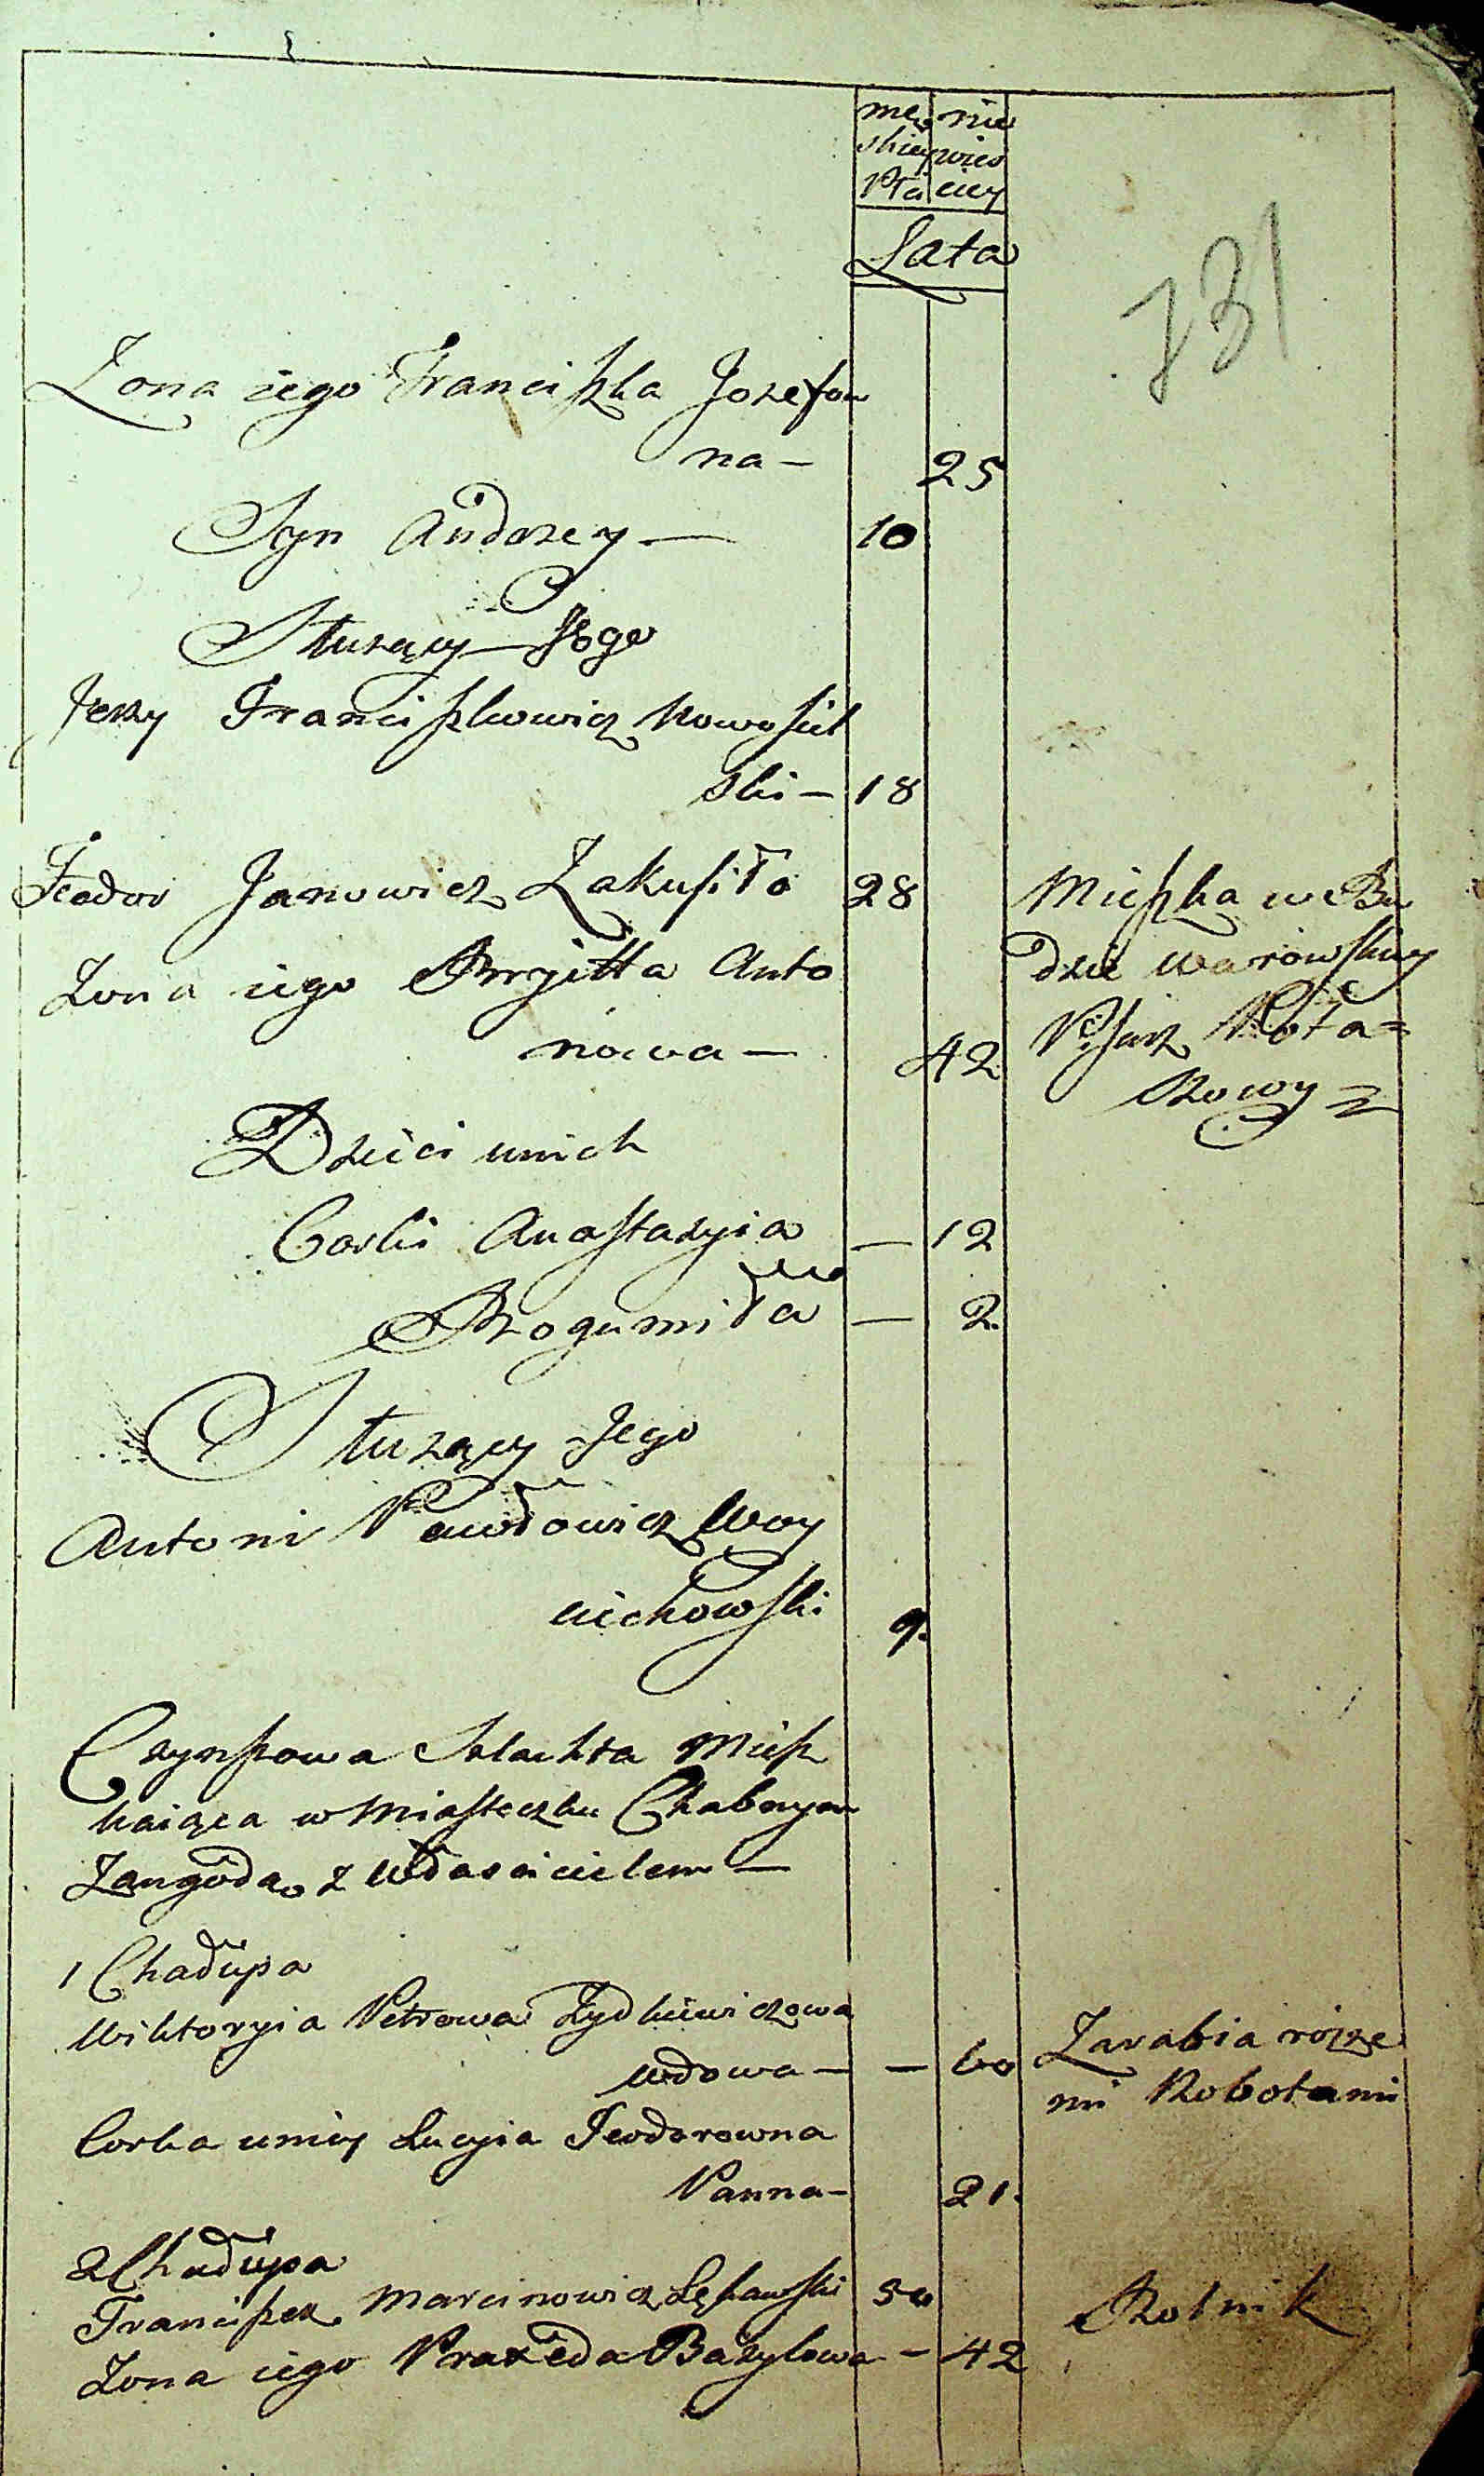 męs nie
skiey wies
Płci ciey
Lata
731
Zona iego Franciszka Jozefow
na — 25
Syn Andrzey — 10
Służący Jego
Jerzy Franciszkowicz Nowosiel
ski — 18
Feodor Janowicz Zakusiło 28 Mieszka w Bu
Zona iego Brygitta Anto dzie Warowskiey
nowa — 42 Pisarz Pota=
szowy
Dzieci unich
Corki Anastazyia — 12
Bogumiła — 2.
Służący Jego
Antoni Pawłowicz Woy
ciechowski 9.
Czynszowa Szlachta Miesz
kaiąca w Miasteczku Chabnym
Zaugodą z Włascicielem —
1 Chałupa
Wiktoryia Petrowa Zydkiewiczowa Zarabia rożne
wdowa — — 60 mi Robotami
Corka uniey Lucyia Teodorowna
Panna — 21.
2 Chałupa
Franciszek Marcinowicz 50 Rolnik
Zona iego Praxeda Bazylowa — 42